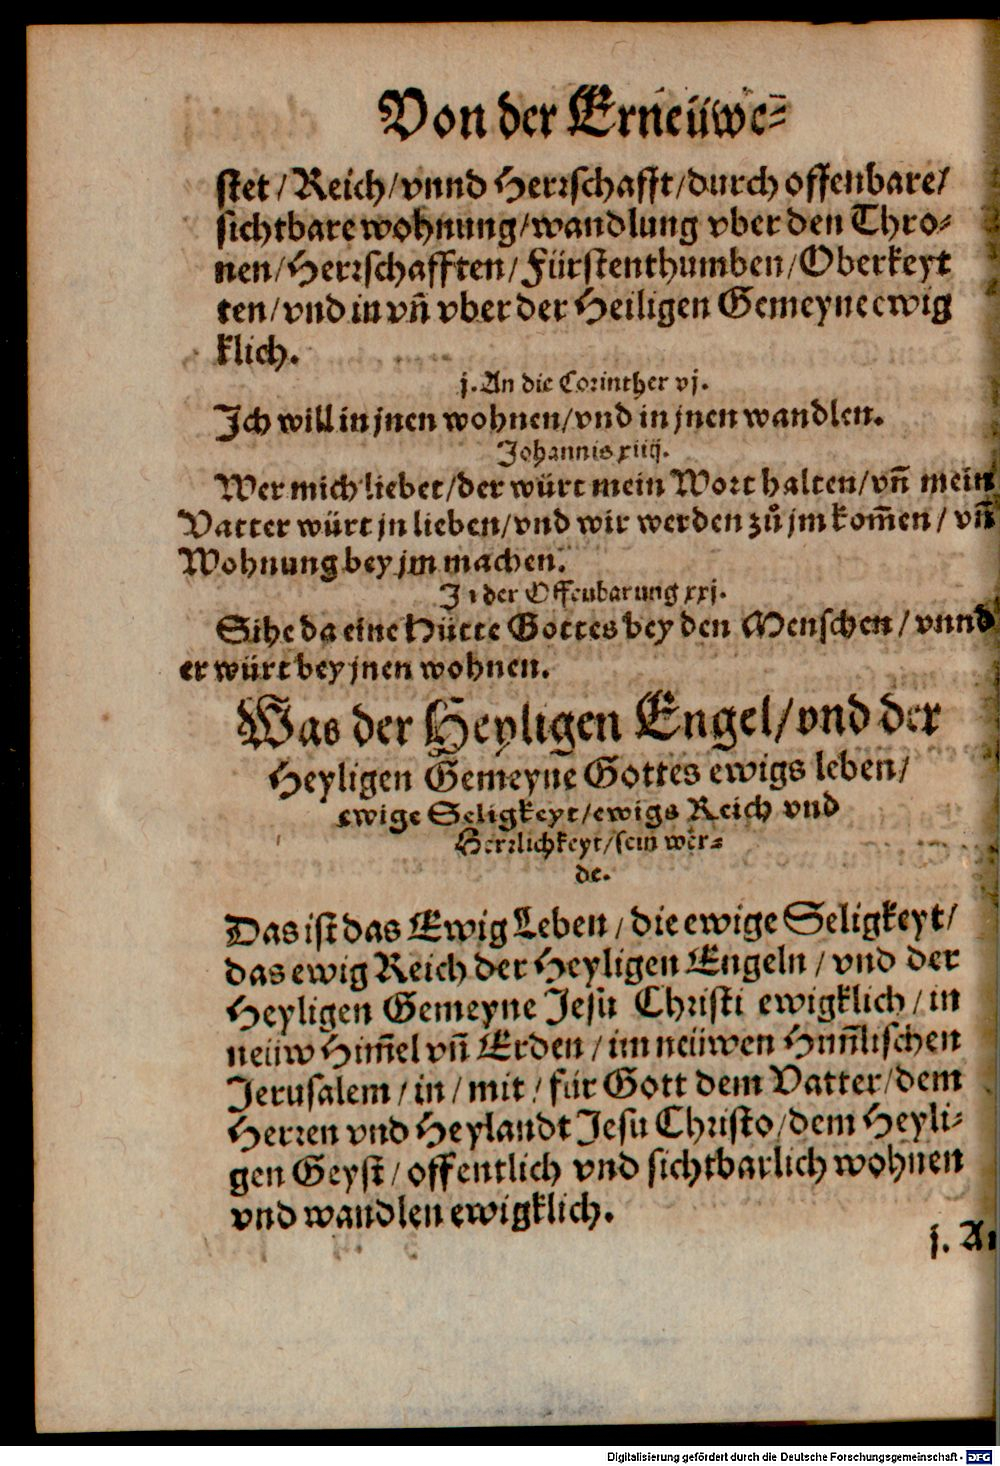 Von der Erneüwe⸗
stet/Reich/vnnd Herrschafft/durch offenbare/
sichtbare wohnung/wandlung vber den Thro⸗
nen/Herrschafften/Fürstenthumben/Oberkeyt
ten/vnd in vñ vber der Heiligen Gemeyne ewig
klich.
j. An die Corinther vj.
Ich will in jnen wohnen/vnd in jnen wandlen.
Johannis xiiij.
Wer mich liebet/der würt mein Wort halten/vñ mein
Vatter würt jn lieben/vnd wir werden zů jm kom̃en/vñ
Wohnung bey jm machen.
In der Offenbarung xxj.
Sihe da eine Hütte Gottes bey den Menschen/vnnd
er würt bey jnen wohnen.
Was der Heyligen Engel/vnd der
Heyligen Gemeyne Gottes ewigs leben/
ewige Seligkeyt/ewigs Reich vnd
Herrlichkeyt/sein wer⸗
de.
Das ist das Ewig Leben/die ewige Seligkeyt/
das ewig Reich der Heyligen Engeln/vnd der
Heyligen Gemeyne Jesu Christi ewigklich/in
neüw Him̃el vñ Erden/im neüwen Him̃lischen
Jerusalem/in/mit/für Gott dem Vatter/dem
Herren vnd Heylandt Jesu Christo/dem Heyli⸗
gen Geyst/offentlich vnd sichtbarlich wohnen
vnd wandlen ewigklich.
j. An
Digitalisierung gefördert durch die Deutsche Forschungsgemeinschaft - DFG